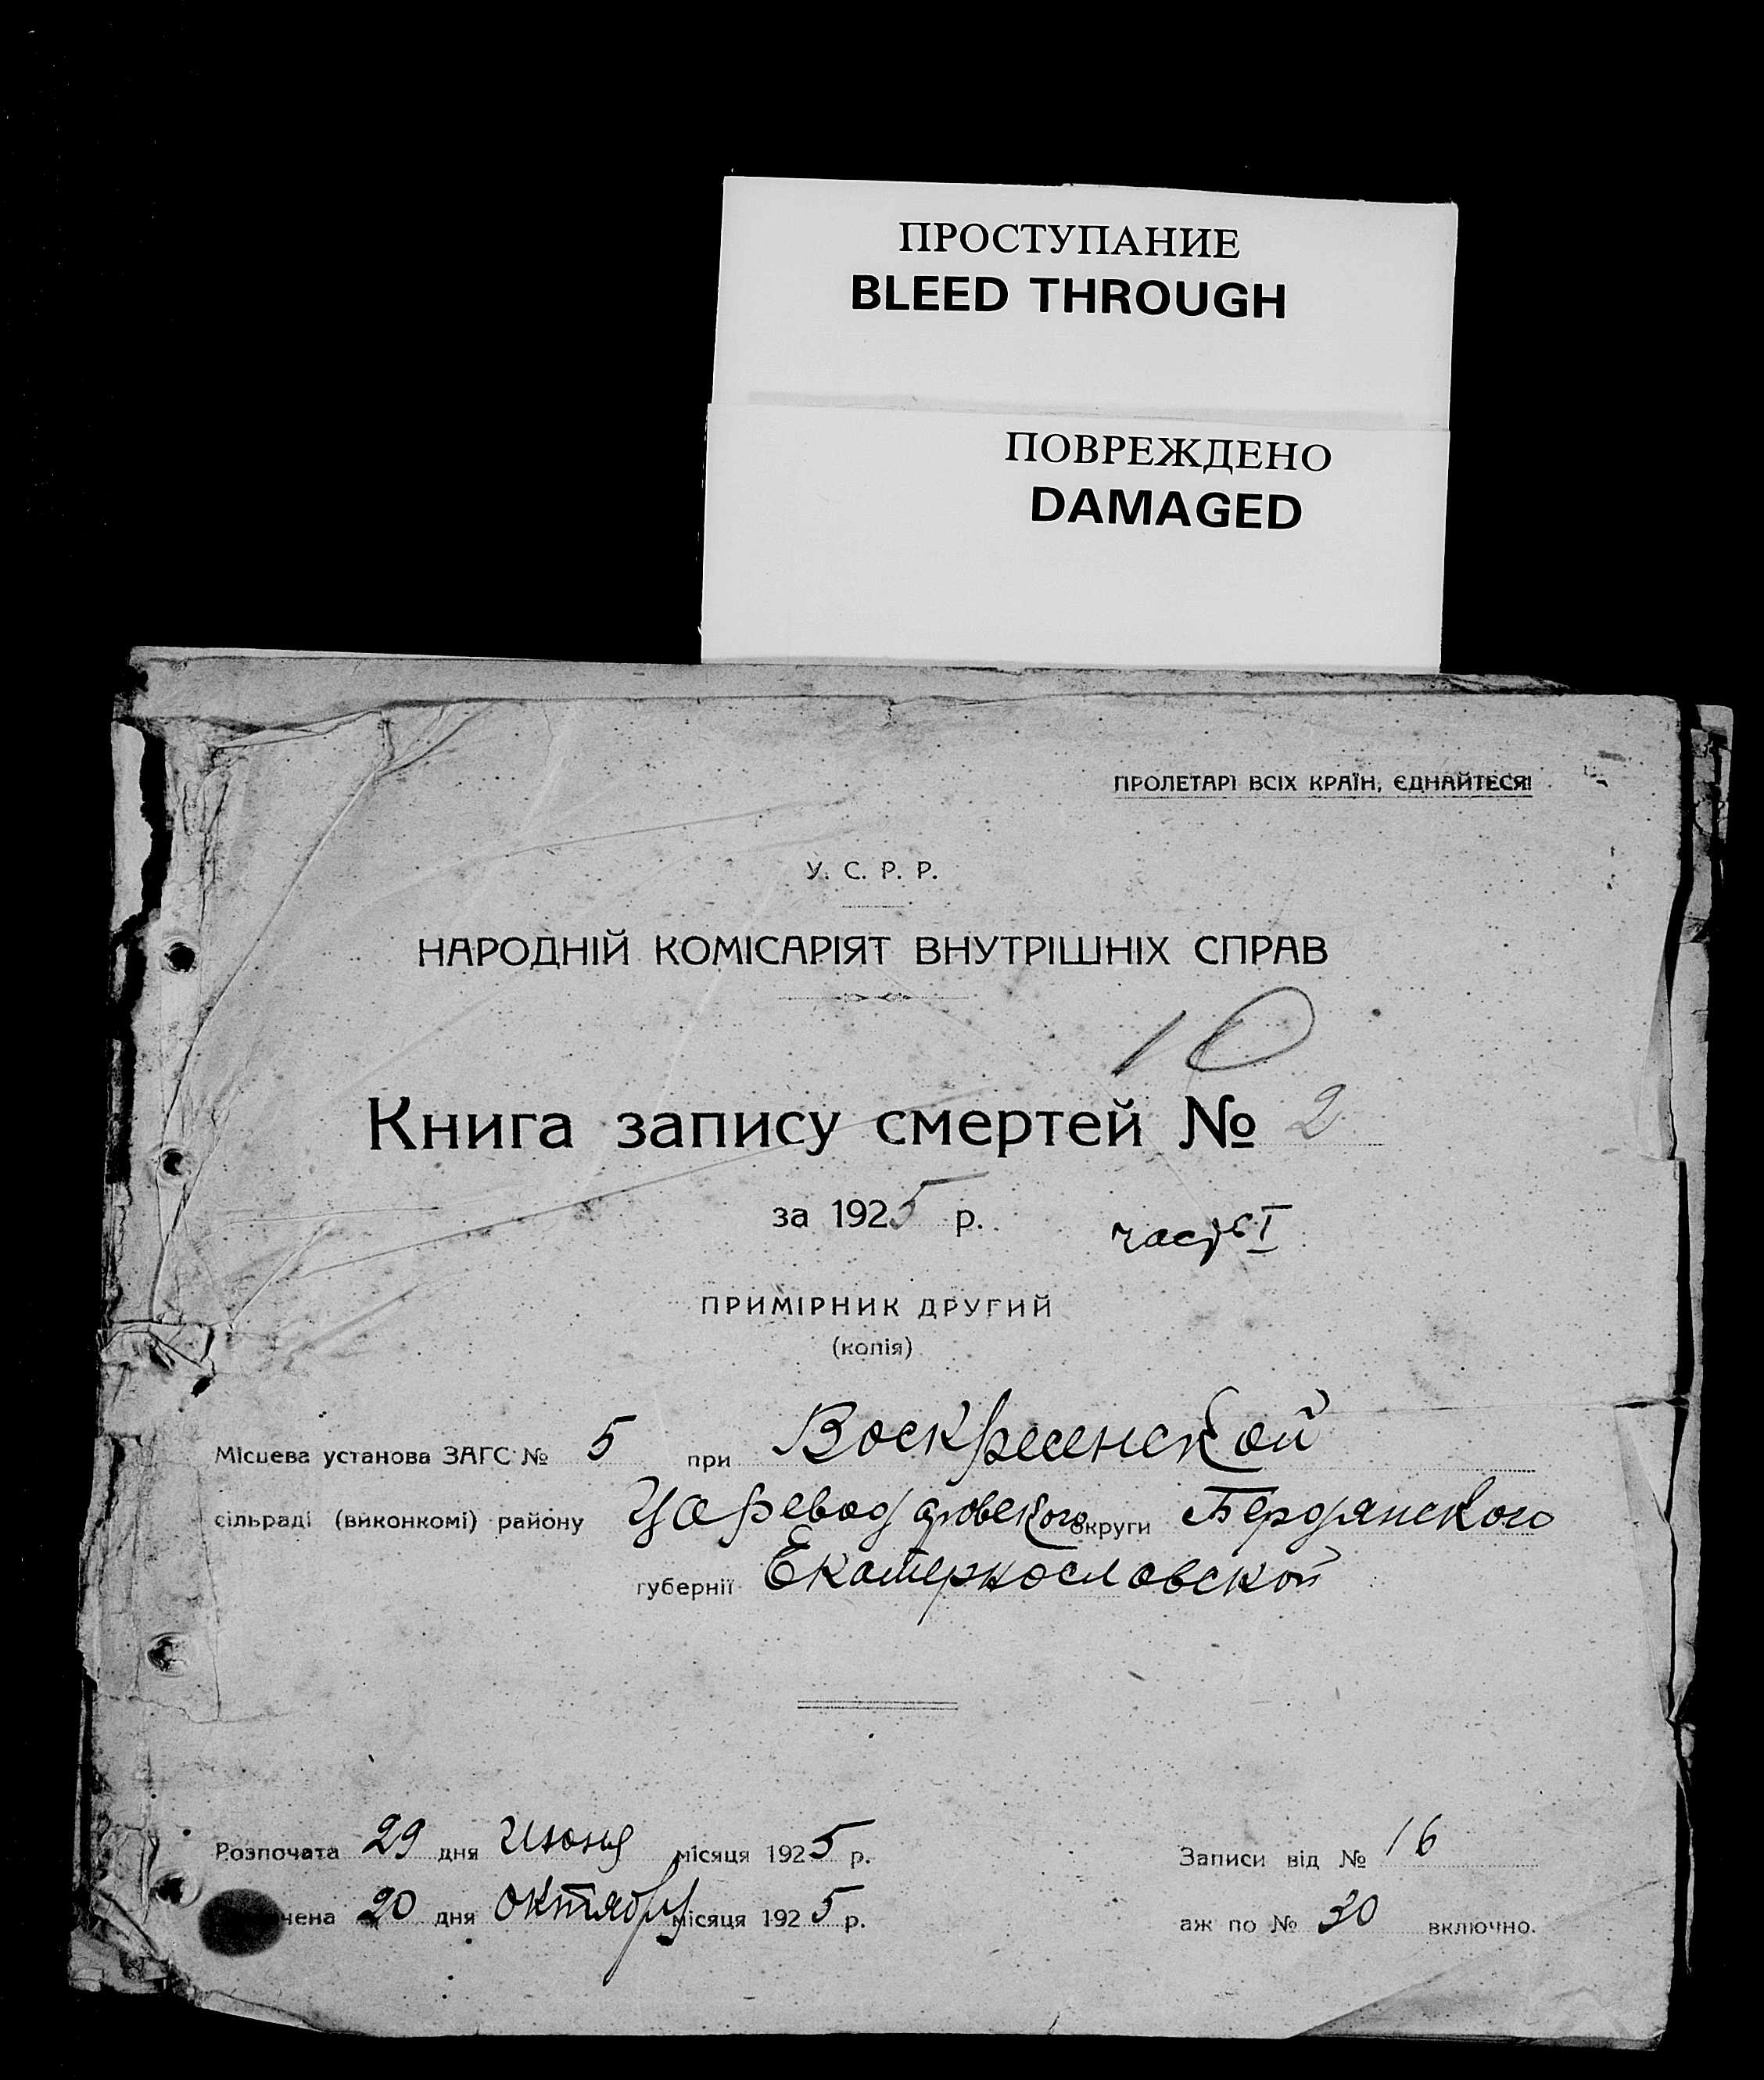 ПРОСТУПАНИЕ
BLEED THROUGH
ПОВРЕЖДЕНО
DAMAGED
ПРОЛЕТАРІ ВСІХ КРАЇН, ЄДНАЙТЕСЯ!
У. С. Р. Р.
НАРОДНІЙ КОМІСАРІЯТ ВНУТРІШНІХ СПРАВ
10
Книга запису смертей № 2
за 1925 р. часть I
ПРИМІРНИК ДРУГИЙ
(копія)
Місцева установа ЗАГС № 5 при Воскресенской
сільраді (виконкомі) району округи Бердянского
губернії Екатеринославской
Розпочата 29 дня Июня місяця 1925 р. Записи від № 16
чена 20 дня октября місяця 1925 р. аж по № 30 включно.